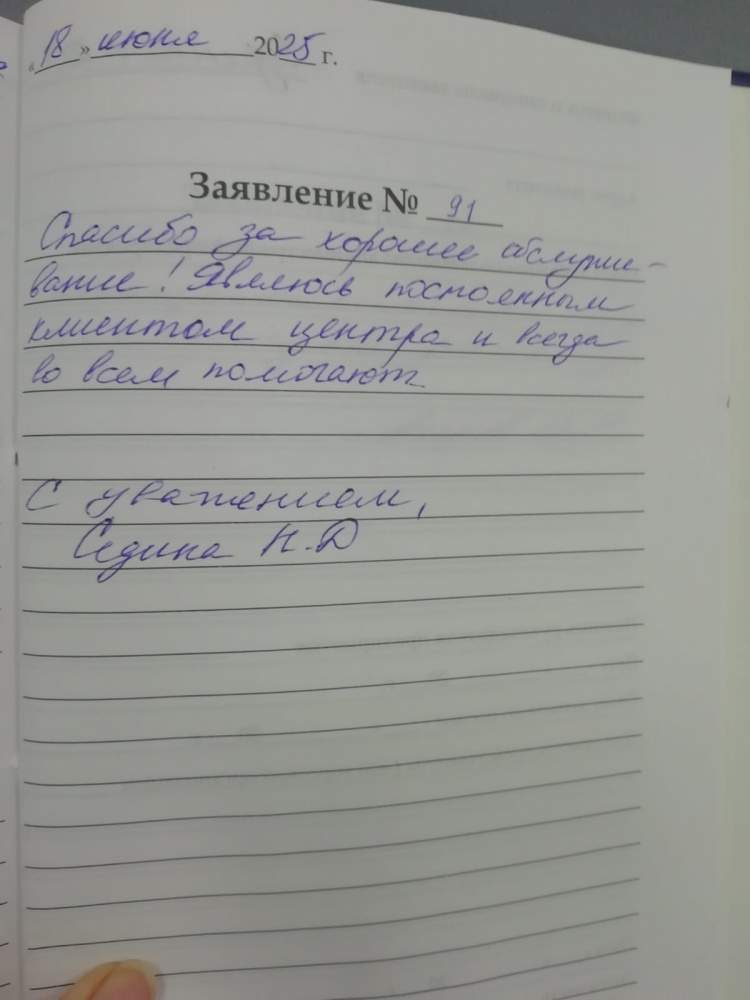 «18» июня 2025 г.
Заявление № 91
Спасибо за хорошее обслужи-
вание! Являюсь постоянным
клиентом центра и всегда
во всем помогают.
С уважением,
Седина Н.Д